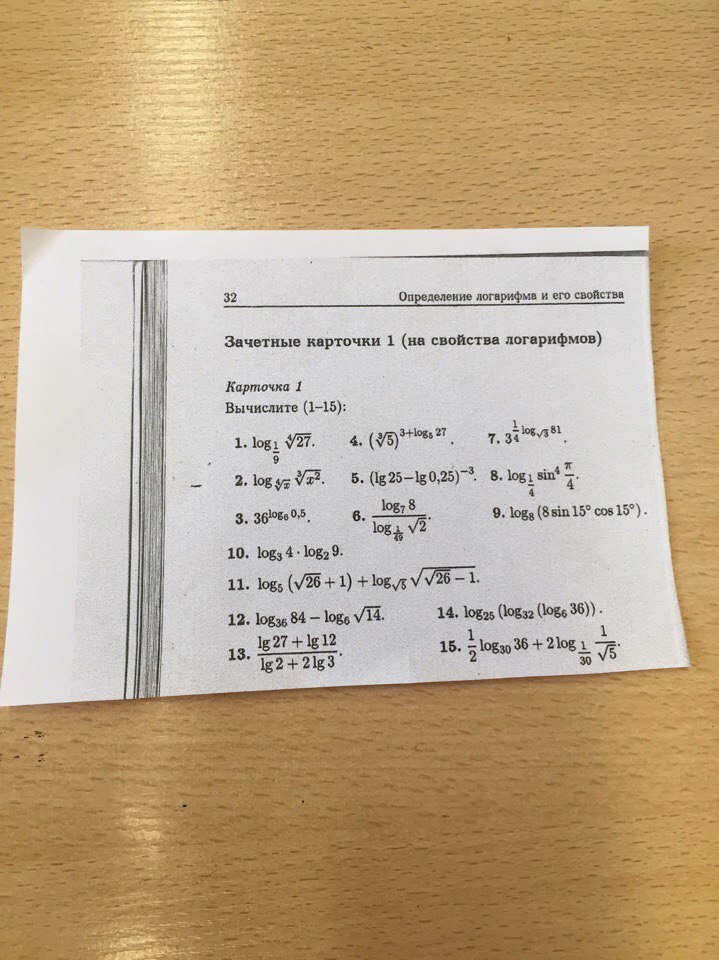 32 Определение логарифма и его свойства
Зачетные карточки 1 (на свойства логарифмов)
Карточка 1
Вычислите (1–15):
1. log_{1/9} ∜27. 4. (∛5)^{3+log₅ 27}. 7. 3^{1/4 log_{√3} 81}.
2. log_{∜x} ∛x². 5. (lg 25−lg 0,25)^{−3}. 8. log_{1/4} sin⁴ π/4.
3. 36^{log₆ 0,5}. 6. log₇ 8 / log_{1/49} √2. 9. log₈ (8 sin 15° cos 15°).
10. log₃ 4 · log₂ 9.
11. log₅ (√26 + 1) + log_{√5} √(√26 − 1).
12. log₃₆ 84 − log₆ √14. 14. log₂₅ (log₃₂ (log₆ 36)).
13. (lg 27 + lg 12) / (lg 2 + 2 lg 3). 15. 1/2 log₃₀ 36 + 2 log_{1/30} 1/√5.